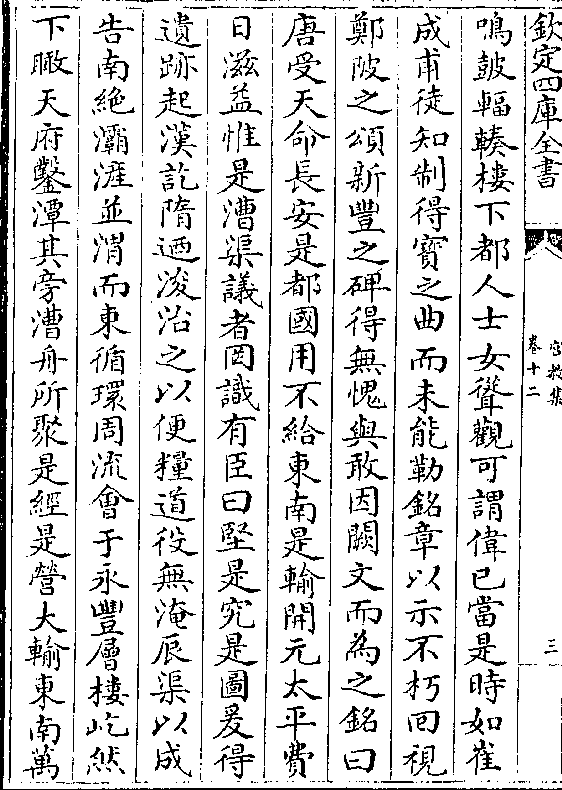 欽定四庫全書
宮教集
卷十二
三
鳴鼓輻輳樓下都人士女聳觀可謂偉已當是時如崔
成甫徒知制得寳之曲而未能勒銘章以示不朽回視
鄭陂之頌新豐之碑得無愧與敢因闕文而為之銘曰
唐受天命長安是都國用不給東南是輸開元太平費
日滋益惟是漕渠議者罔識有臣曰堅是究是圖爰得
遺跡起漢訖隋迺浚治之以便糧道役無淹辰渠以成
告南絶灞滻並渭而東循環周流會于永豐層樓屹然
下瞰天府鑿潭其旁漕舟所聚是經是營大輸東南萬